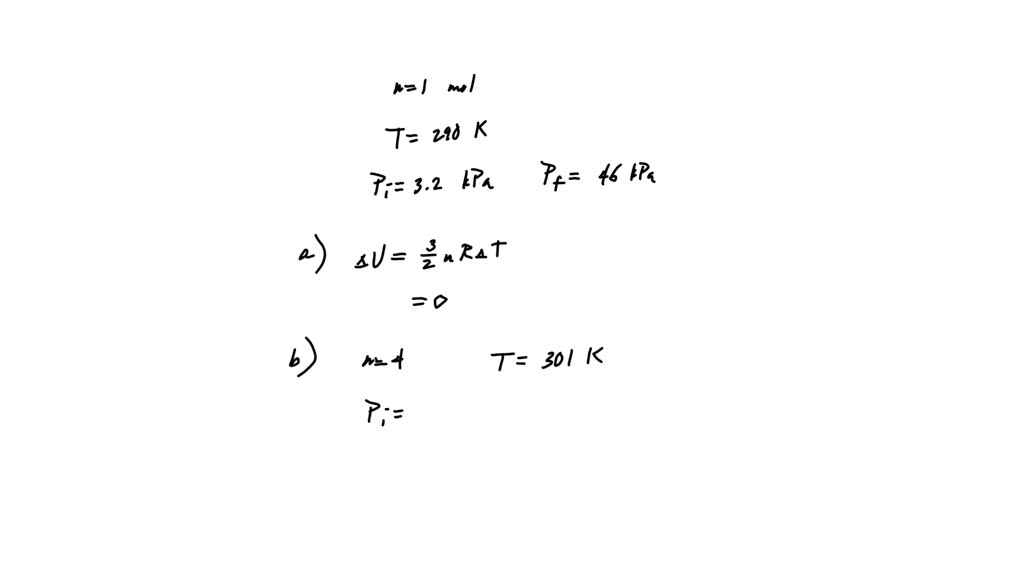 n=1 mol
T= 290 K
Pi= 3.2 kPa Pf= 46 kPa
a) ΔU= 3/2 n R Δ T
=0
b) n=4 T= 301 K
Pi=